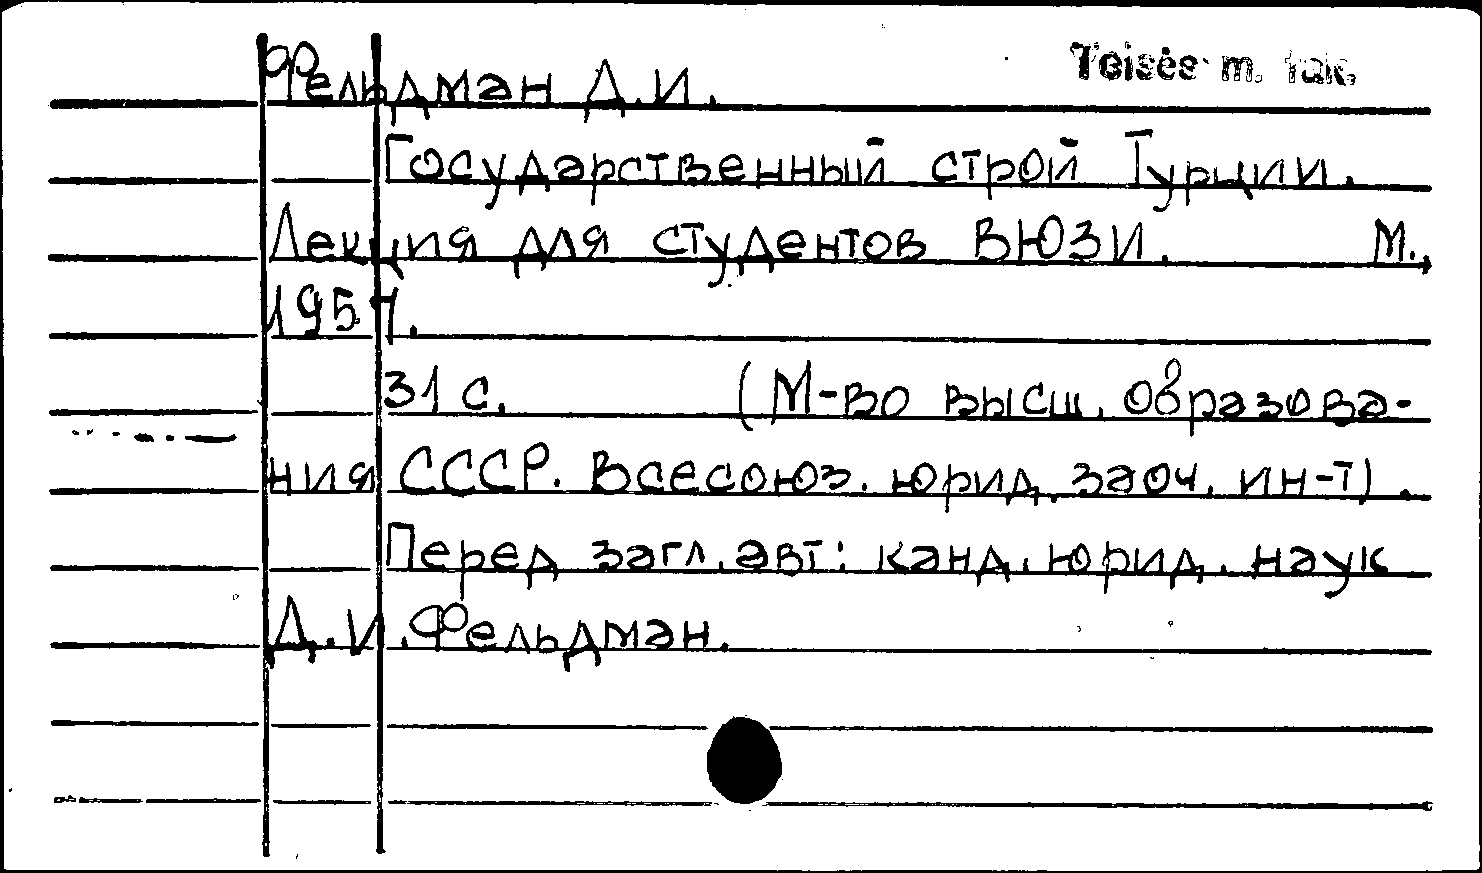 Teisės m. fak.
Фельдман Д.И.
Государственный строй Турции.
Лекция для студентов ВЮЗИ. М.,
1957.
31 с. (М-во высш. образова-
ния СССР. Всесоюз. юрид. заоч. ин-т).
Перед загл. авт: канд. юрид. наук
Д.И. Фельдман.